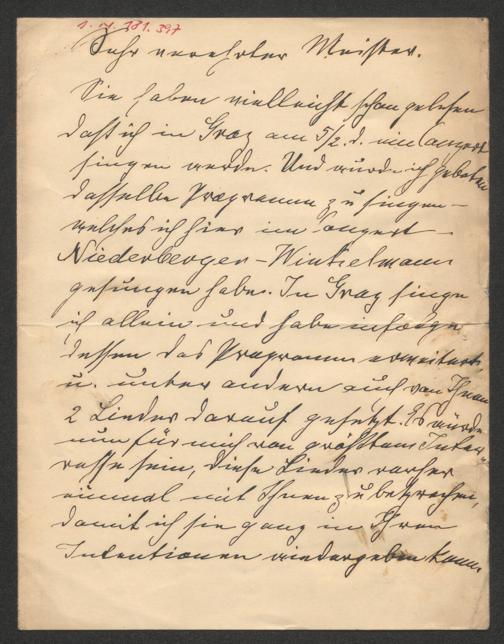 I.N. 181.397
Sehr verehrter Meister.
Sie haben vielleicht schon gelesen
daß ich in Graz am 5/2. d. ein Conzert
singen werde. Und wurde ich gebeten
dasselbe Programm zu singen –
welches ich hier im Conzert –
Niederberger – Winkelmann
gesungen habe. In Graz singe
ich allein und habe infolge
dessen das Programm erweitert
u. unter andern auch von Ihnen
2 Lieder darauf gesetzt. Es würde
nun für mich von größtem Inter-
resse sein, diese Lieder vorher
einmal mit Ihnen zu besprechen,
damit ich sie ganz in Ihren
Intentionen wiedergeben kann